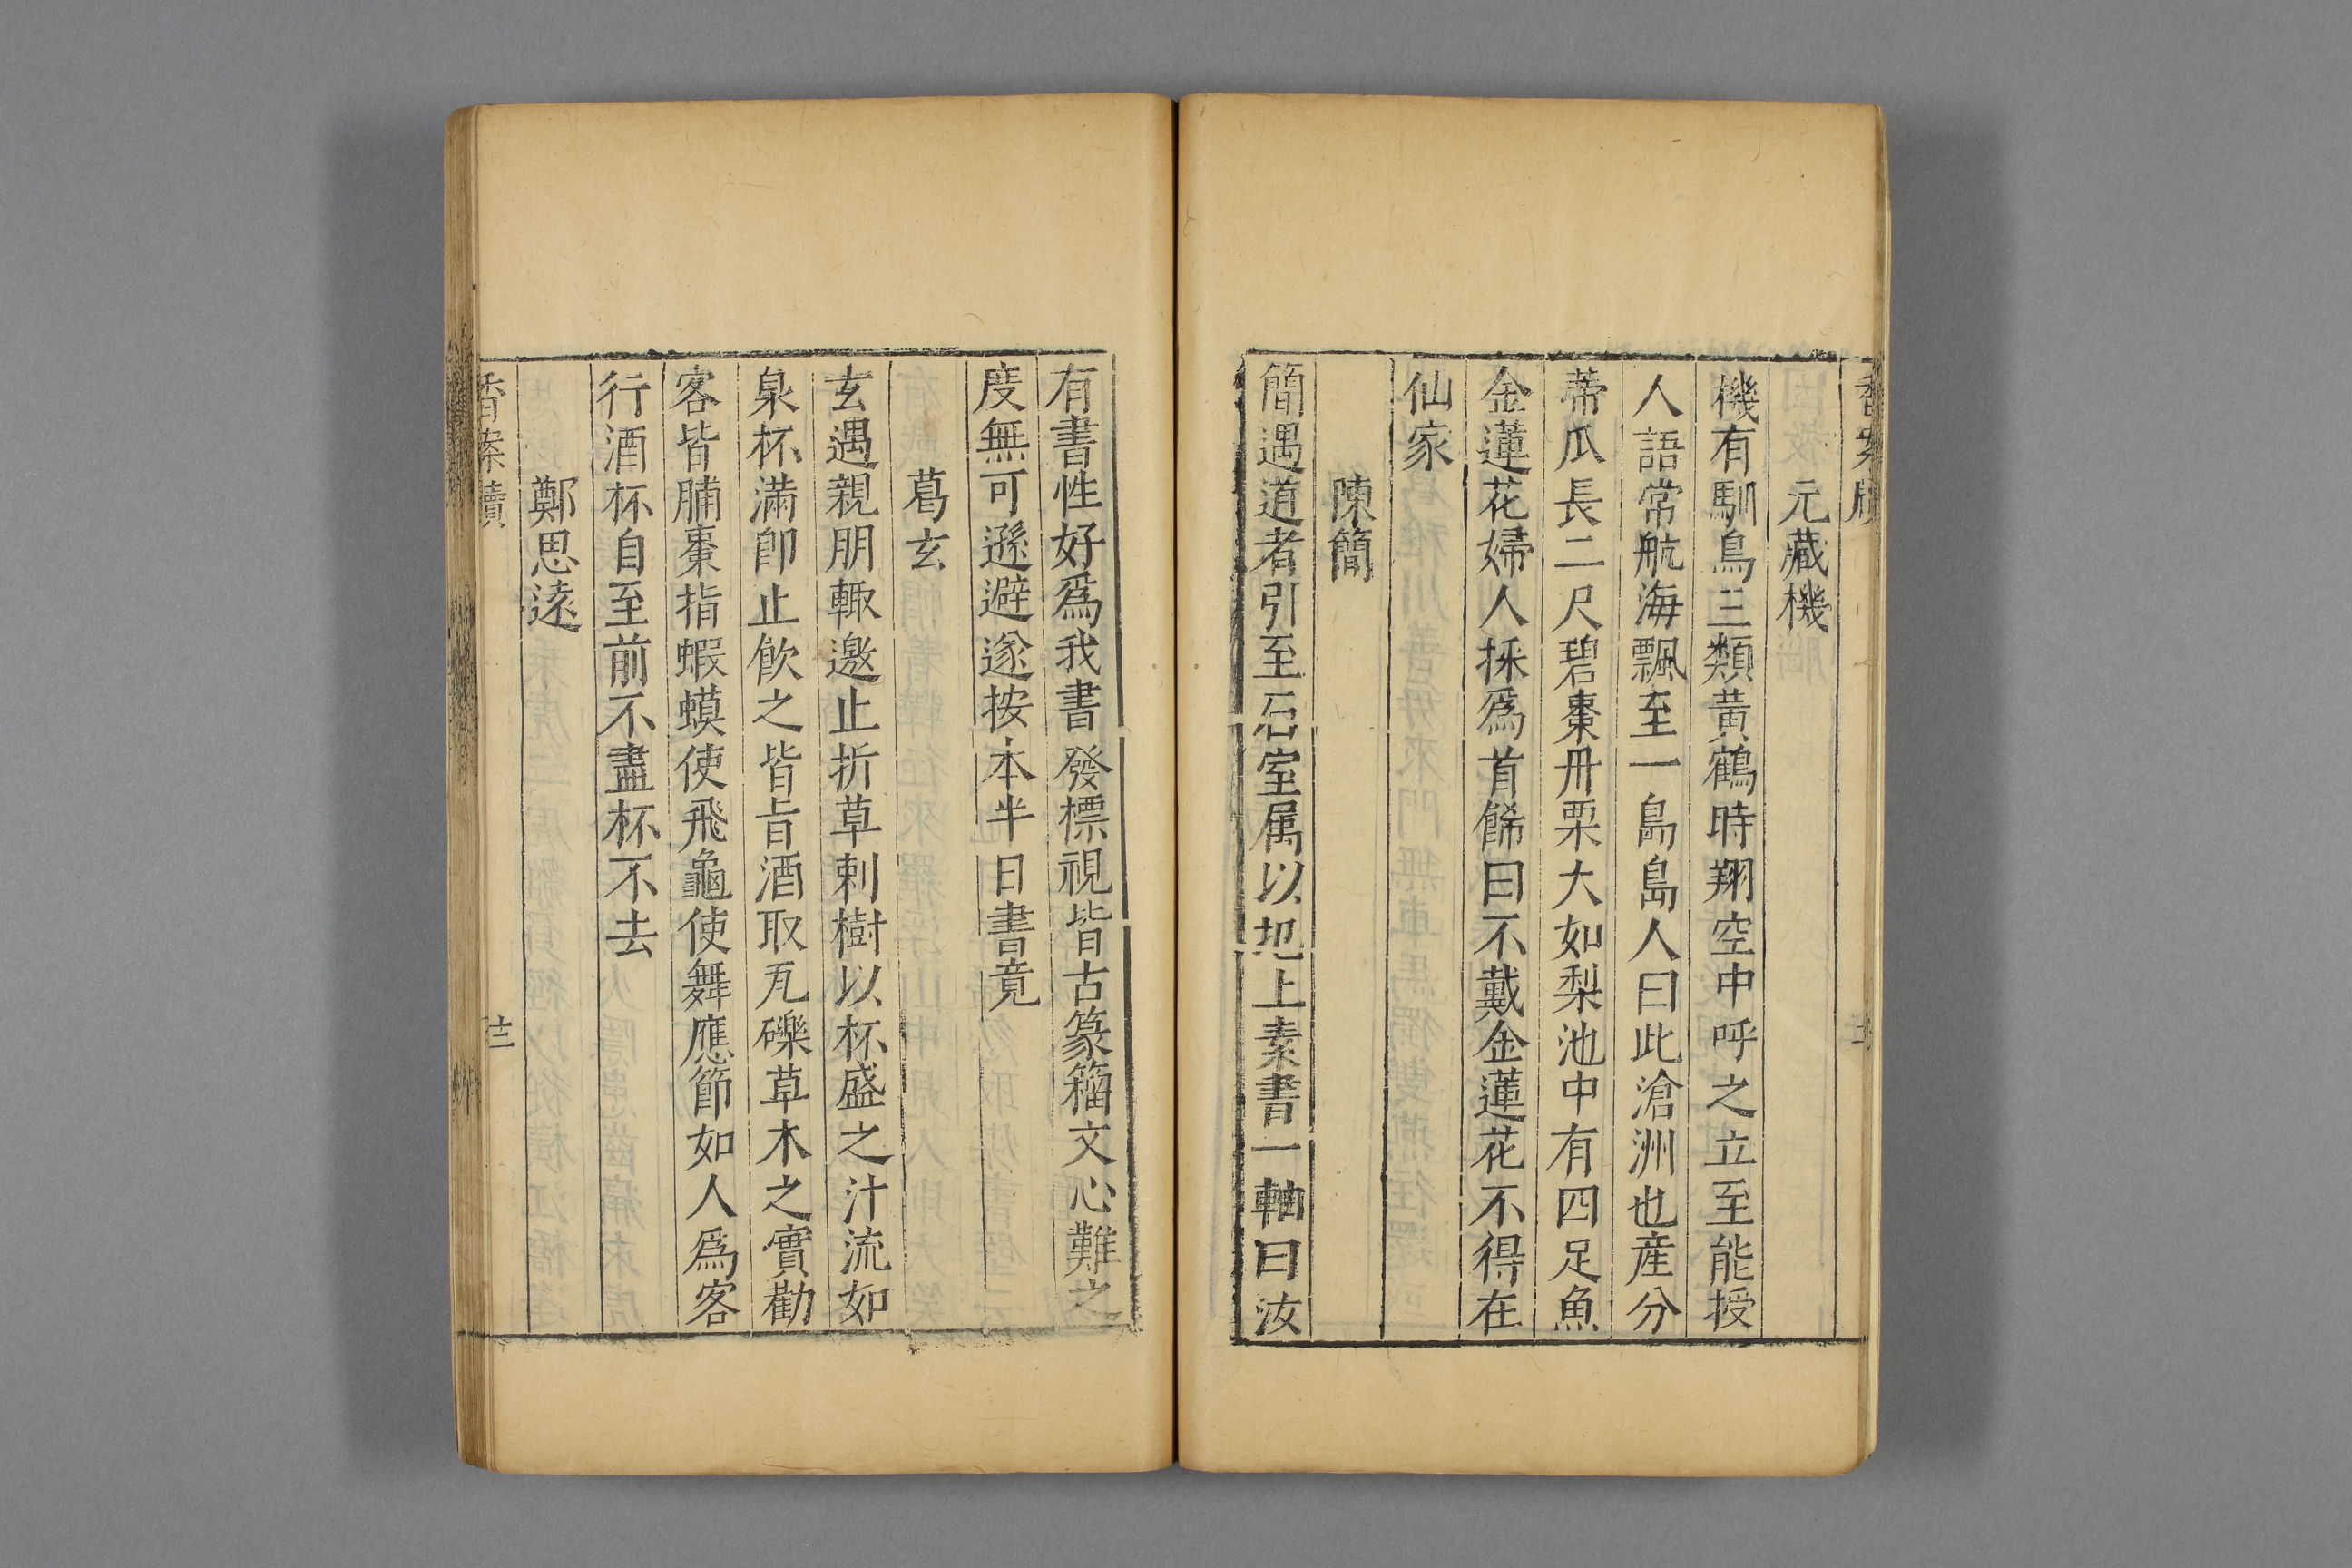 香案牘
元藏機
機有馴鳥三類黃鶴時翔空中呼之立至能授
人語常航海飄至一島島人曰此滄洲也産分
蔕瓜長二尺碧棗丹栗大如梨池中有四足魚
金蓮花婦人採爲首餙曰不戴金蓮花不得在
仙家
陳簡
簡遇道者引至石室属以圯上素書一軸曰汝
有書性好爲我書發標視皆古篆籀文心難之
度無可遜避遂按本半日書竟
葛玄
玄遇親朋輙邀止折草剌樹以杯盛之汁流如
泉杯滿卽止飮之皆旨酒取瓦礫草木之實勸
客皆脯棗指蝦蟆使飛龜使舞應節如人爲客
行酒杯自至前不盡杯不去
鄭思遠
香案牘 十二